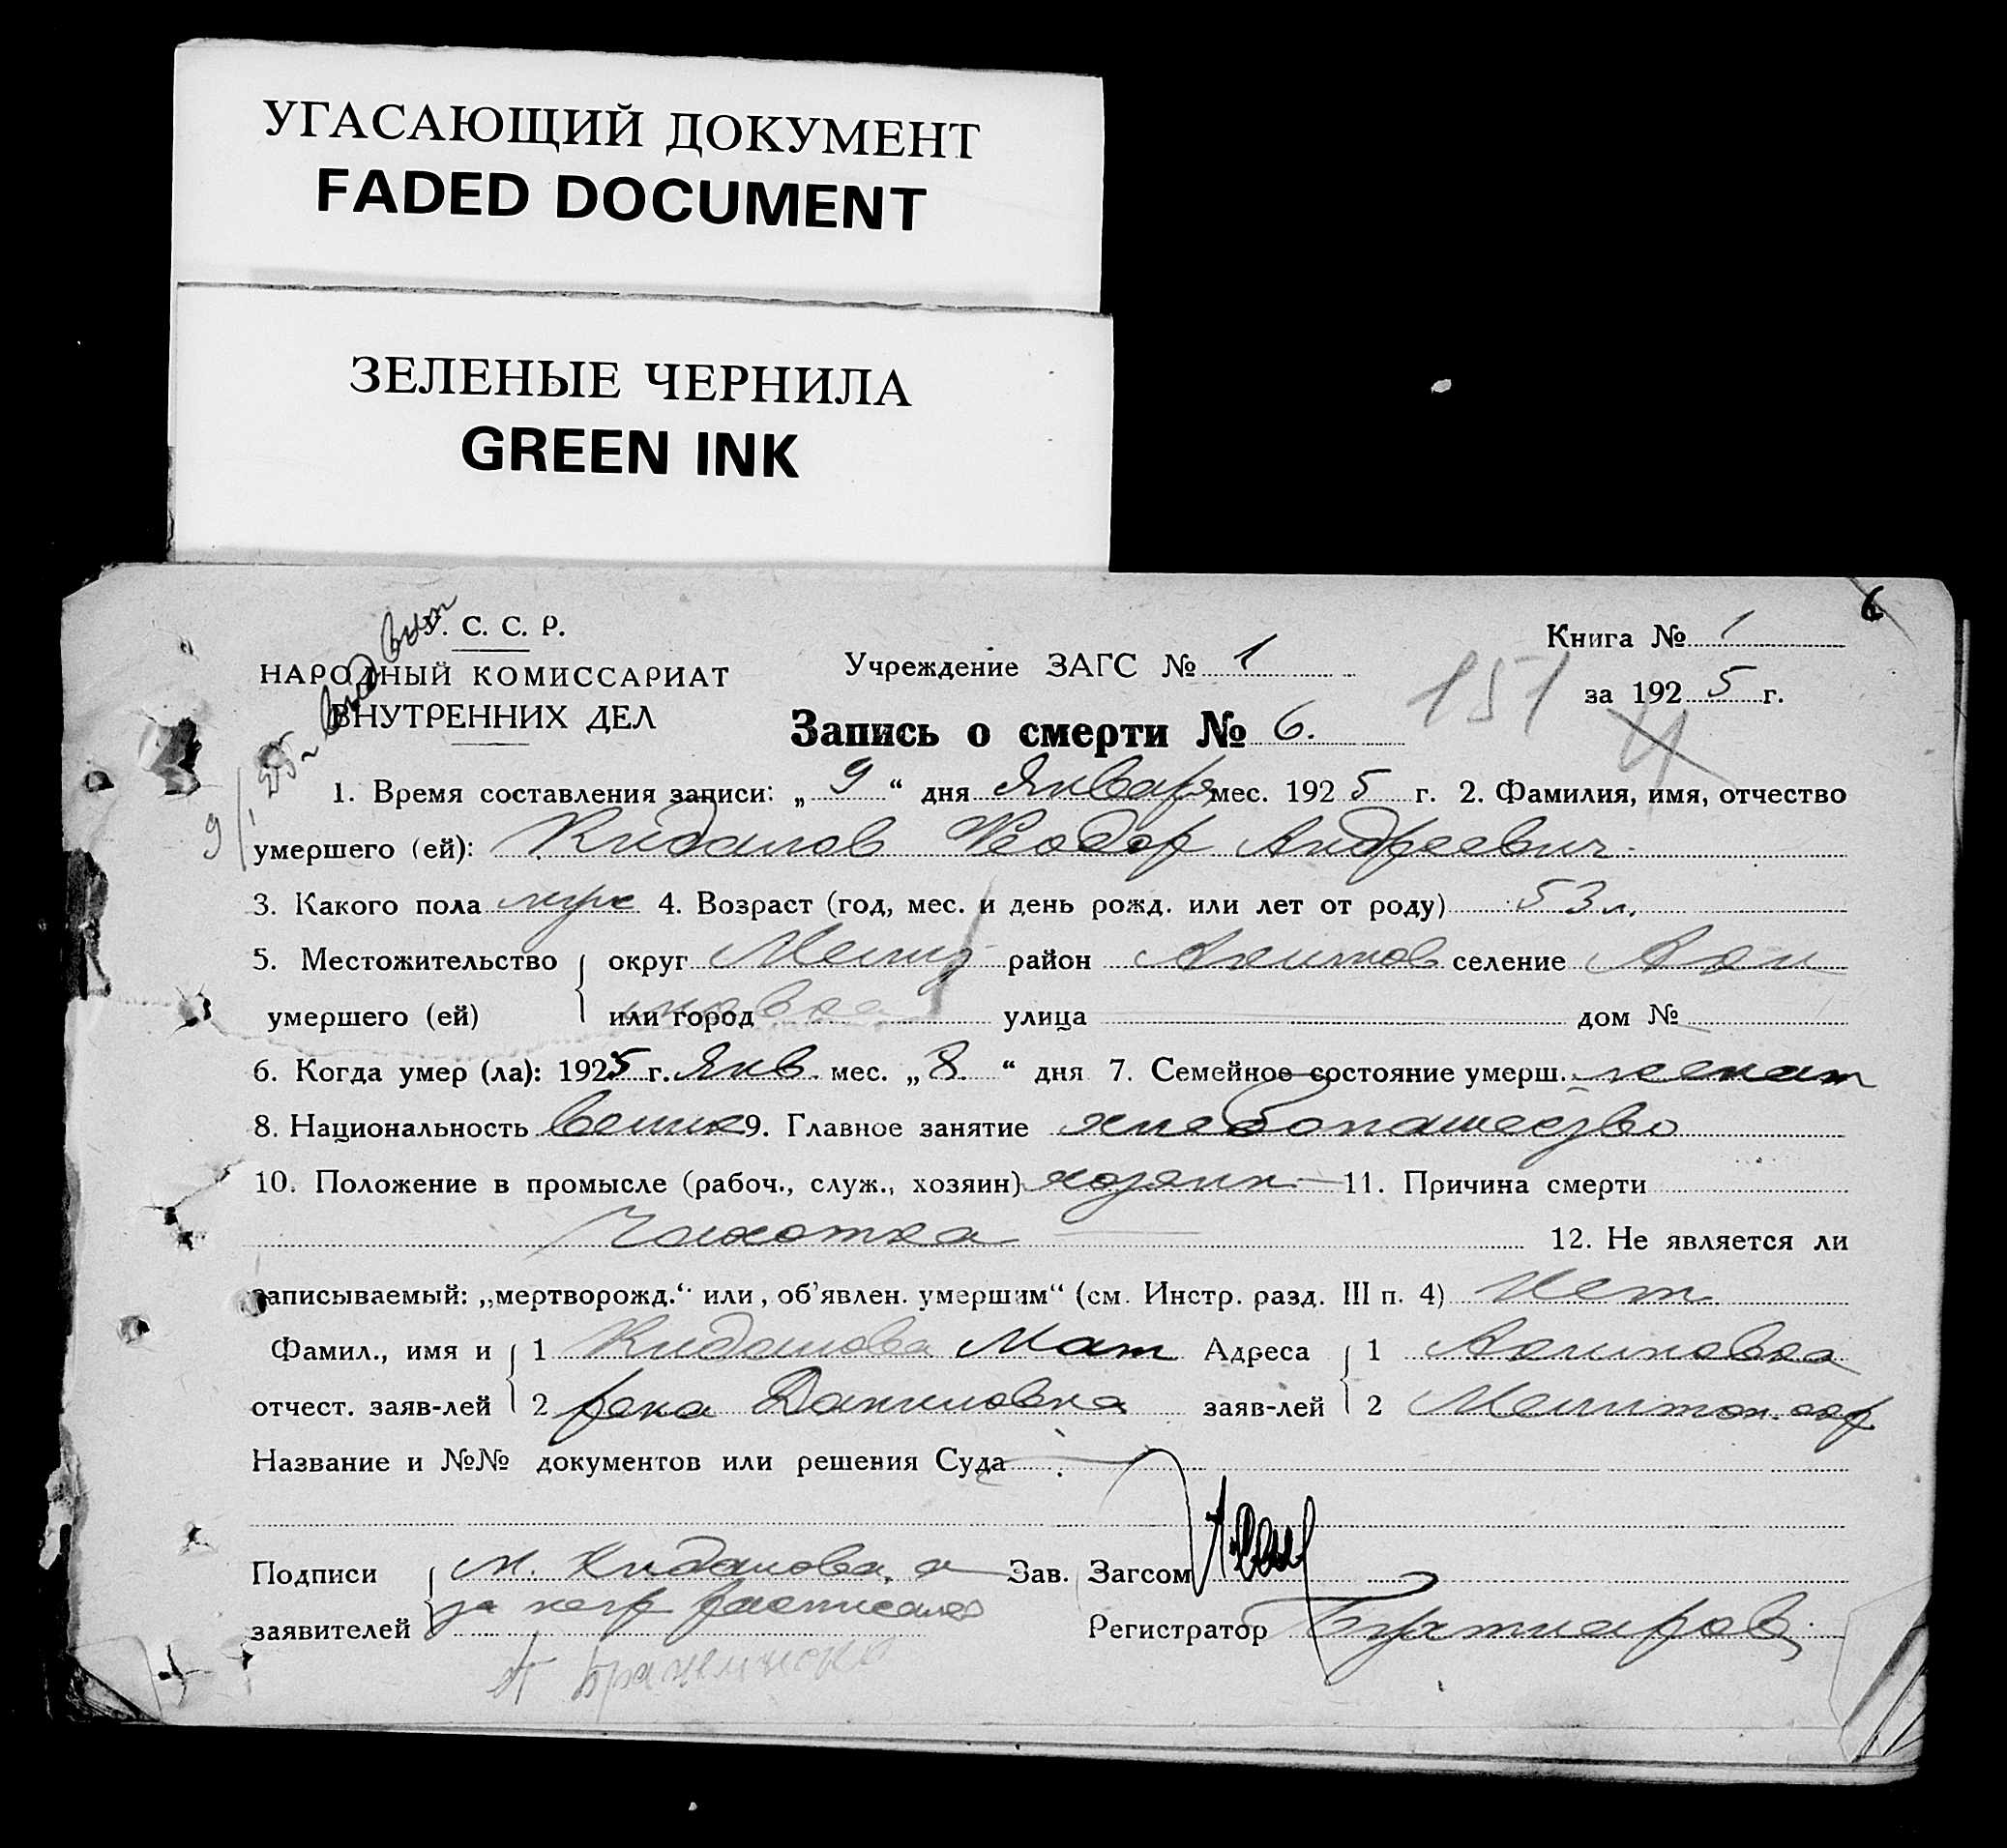 УГАСАЮЩИЙ ДОКУМЕНТ
FADED DOCUMENT
ЗЕЛЕНЫЕ ЧЕРНИЛА
GREEN INK
6
С. С. Р.
НАРОДНЫЙ КОМИССАРИАТ
ВНУТРЕННИХ ДЕЛ
Учреждение ЗАГС № 1
Книга № 1
за 1925 г.
151
Запись о смерти № 6.
1. Время составления записи: „ 9 “ дня Января мес. 1925 г. 2. Фамилия, имя, отчество
умершего (ей): Кидалов Феодор Андреевич
3. Какого пола муж 4. Возраст (год, мес. и день рожд. или лет от роду) 53 л.
5. Местожительство округ Мелит район Акимов селение Аки
умершего (ей) или город мовка улица дом №
6. Когда умер (ла): 1925 г. Янв. мес. „ 8. “ дня 7. Семейное состояние умерш. женат
8. Национальность велик 9. Главное занятие хлебопашество
10. Положение в промысле (рабоч., служ., хозяин) хозяин 11. Причина смерти
Чахотка 12. Не является ли
записываемый: „мертворожд.“ или „об'явлен. умершим“ (см. Инстр. разд. III п. 4) Нет
Фамил., имя и 1 Кидалова Мат Адреса 1 Акимовка
отчест. заяв-лей 2 рена Даниловна заяв-лей 2 Мелитоп. окр
Название и №№ документов или решения Суда
Подписи М. Кидалова, а Зав. Загсом
заявителей за негр расписался Регистратор